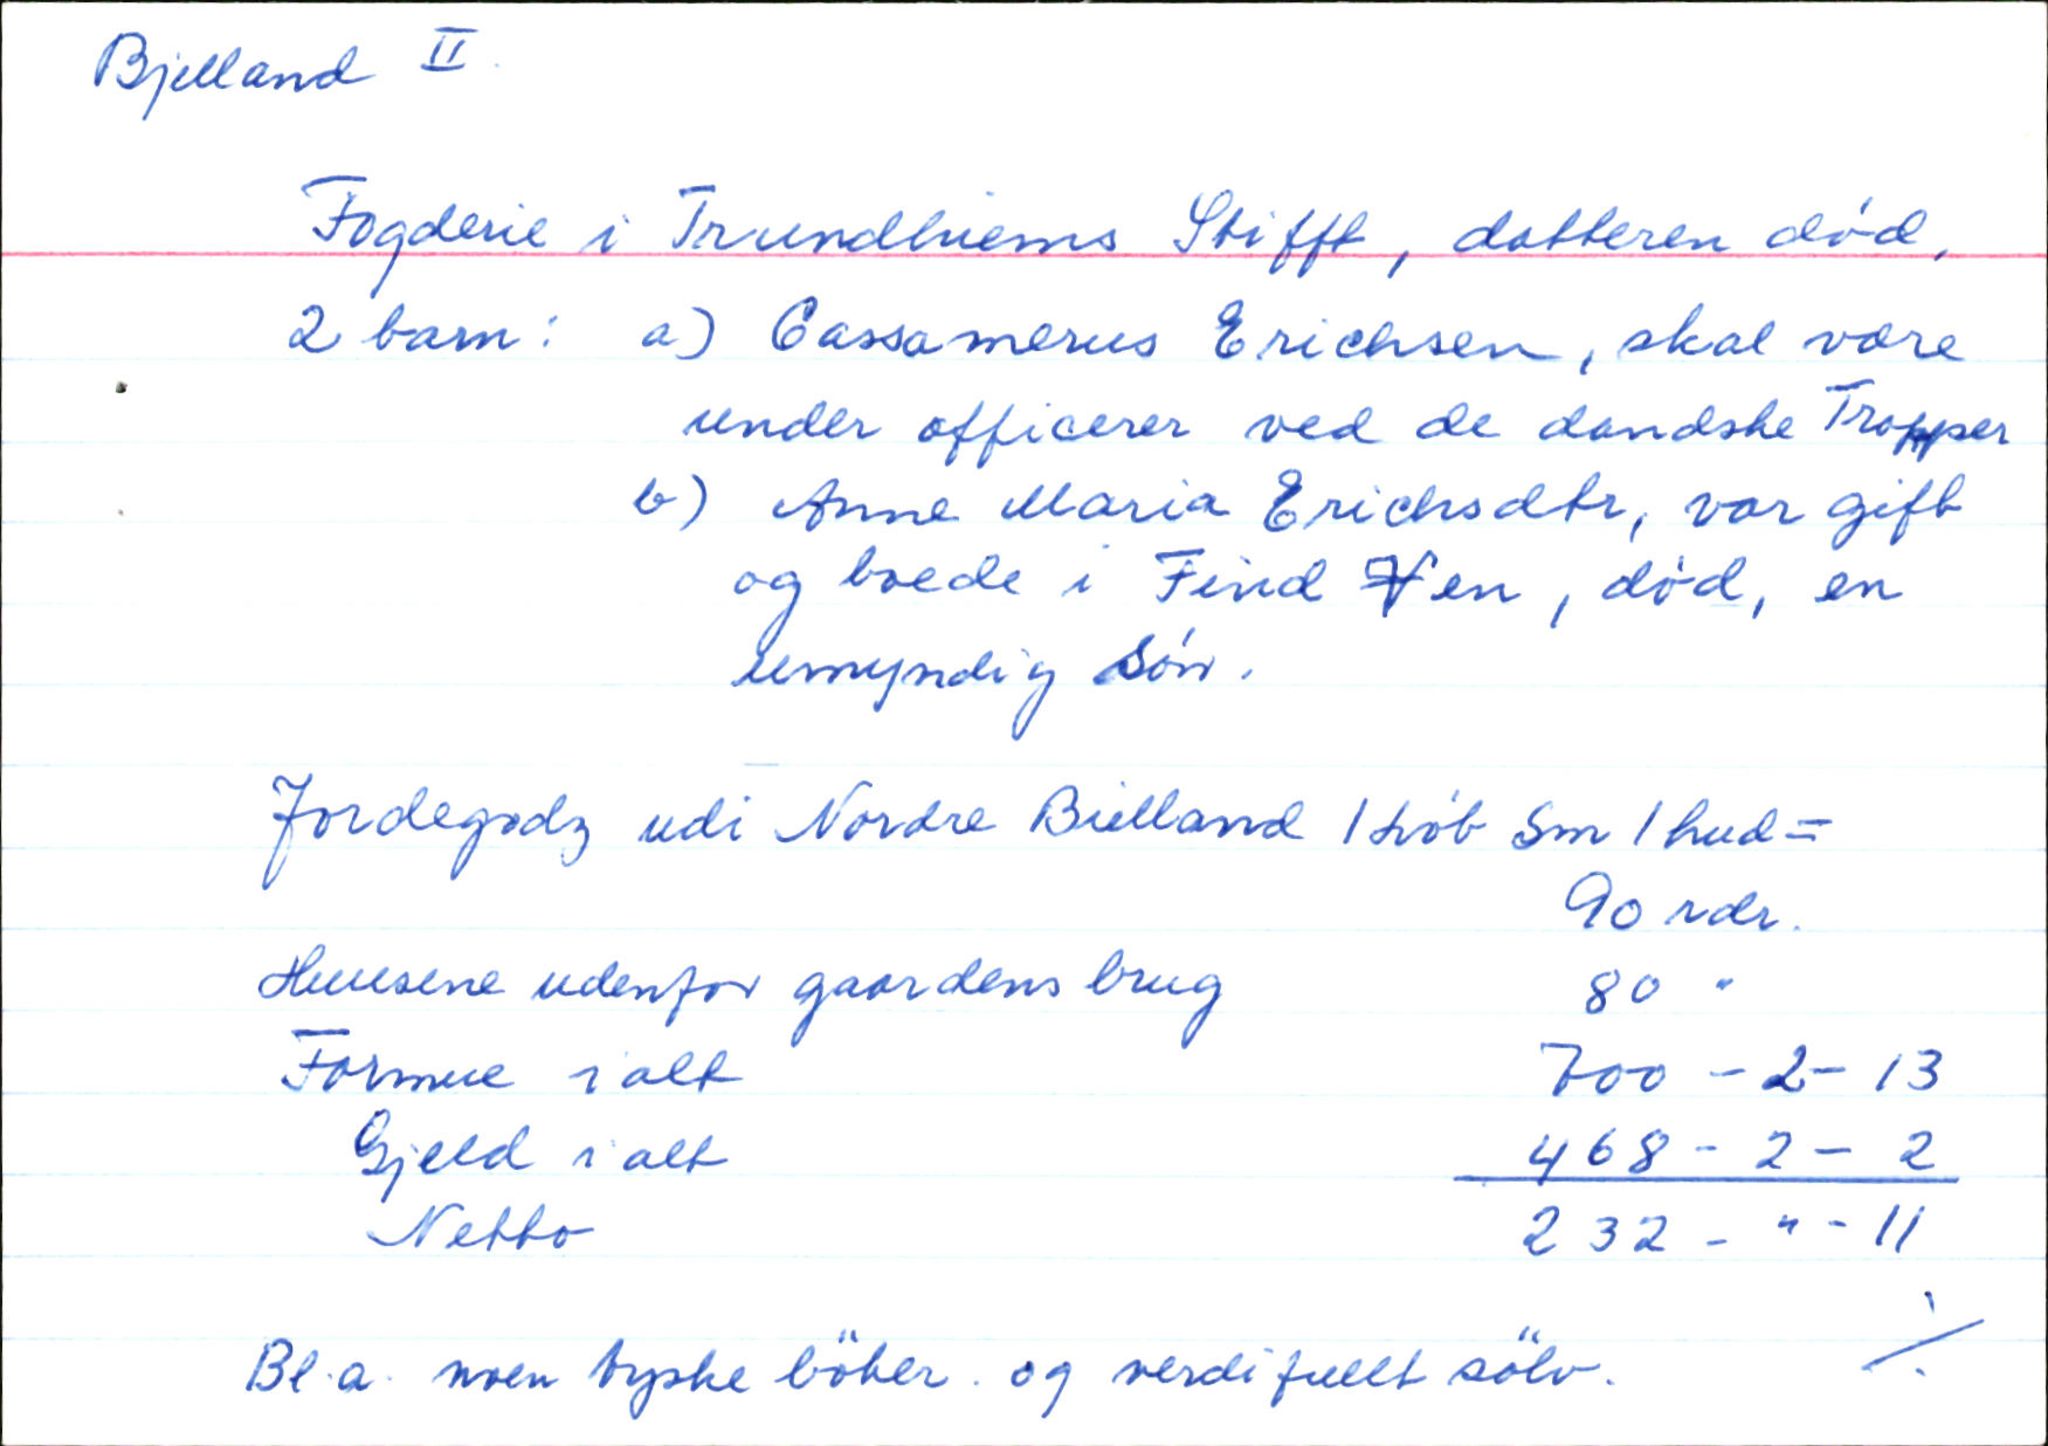 Bjelland II.
Fogderie i Trundhiems Stifft, datteren død,
2 barn: a) Cassamerus Erichsen, skal være
under officerer ved de dandske Tropper
b) Anne Maria Erichsdtr, var gift
og boede i Find Ven, død, en
umyndig søn.
Jordegodz udi Nordre Bielland 1 Løb Sm 1 hud =
90 rdr.
Huusene udenfor gaardens brug 80 "
Formue i alt 700 - 2 - 13
Gjeld i alt 468 - 2 - 2
Netto 232 - " - 11
Bl.a. noen tyske böker og verdifullt sölv. ./.